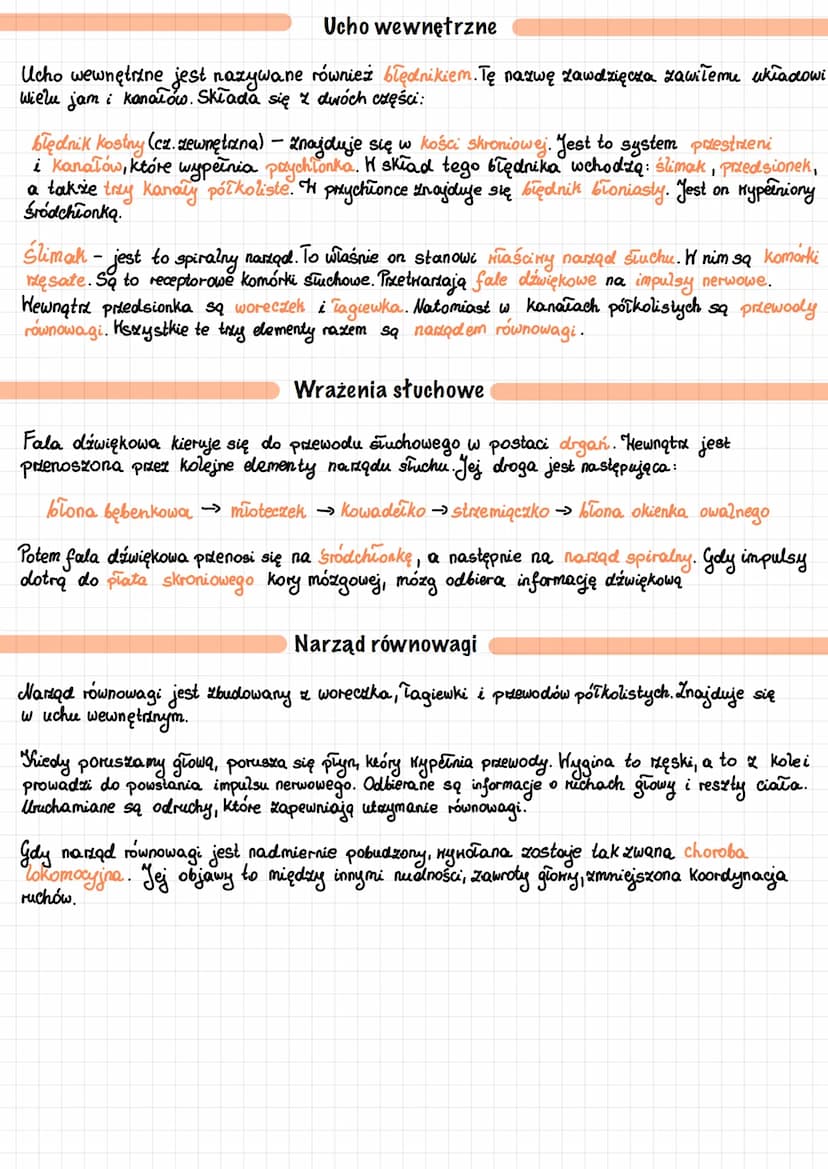 Ucho wewnętrzne
Ucho wewnętrzne jest nazywane również błędnikiem. Tę nazwę zawdzięcza zawiłemu układowi
wielu jam i kanałów. Składa się z dwóch części:
błędnik kostny (cz. zewnętrzna) – znajduje się w kości skroniowej. Jest to system przestrzeni
i kanałów, które wypełnia przychłonka. W skład tego błędnika wchodzą: ślimak, przedsionek,
a także trzy kanały półkoliste. W przychłonce znajduje się błędnik błoniasty. Jest on wypełniony
śródchłonką.
Ślimak – jest to spiralny narząd. To właśnie on stanowi właściwy narząd słuchu. W nim są komórki
rzęsate. Są to receptorowe komórki słuchowe. Przetwarzają fale dźwiękowe na impulsy nerwowe.
Wewnątrz przedsionka są woreczek i łagiewka. Natomiast w kanałach półkolistych są przewody
równowagi. Wszystkie te trzy elementy razem są narządem równowagi.
Wrażenia słuchowe
Fala dźwiękowa kieruje się do przewodu słuchowego w postaci drgań. Wewnątrz jest
przenoszona przez kolejne elementy narządu słuchu. Jej droga jest następująca:
błona bębenkowa → młoteczek → kowadełko → strzemiączko → błona okienka owalnego
Potem fala dźwiękowa przenosi się na śródchłonkę, a następnie na narząd spiralny. Gdy impulsy
dotrą do płata skroniowego kory mózgowej, mózg odbiera informację dźwiękową
Narząd równowagi
Narząd równowagi jest zbudowany z woreczka, łagiewki i przewodów półkolistych. Znajduje się
w uchu wewnętrznym.
Kiedy poruszamy głową, porusza się płyn, który wypełnia przewody. Wygina to rzęski, a to z kolei
prowadzi do powstania impulsu nerwowego. Odbierane są informacje o ruchach głowy i reszty ciała.
Uruchamiane są odruchy, które zapewniają utrzymanie równowagi.
Gdy narząd równowagi jest nadmiernie pobudzony, wywołana zostaje tak zwana choroba
lokomocyjna. Jej objawy to między innymi nudności, zawroty głowy, zmniejszona koordynacja
ruchów.